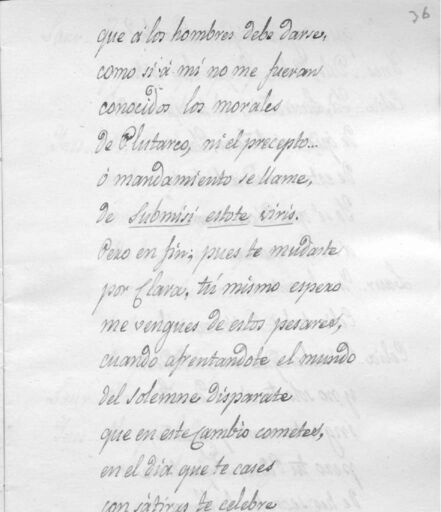 36
que á los hombres debe darse,
como si á mí no me fueran
conocidos los morales
de Plutarco, ni el precepto...
ó mandamiento se llame,
de Submisi estote viris.
Pero en fin; pues te mudaste
por Clara, tú mismo espero
me vengues de estos pesares,
cuando afrentandote el mundo
del solemne disparate
que en este Cambio cometes,
en el día que te cases
con sátiras te celebre